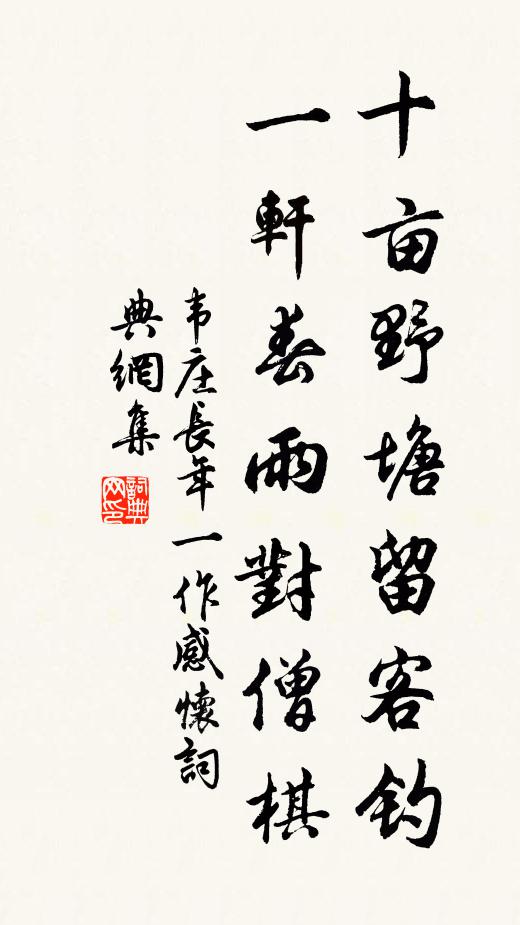 十亩野塘留客钓
一軒春雨對僧棋
韦庄長年一作感懷詞
典網集
詞典
网印